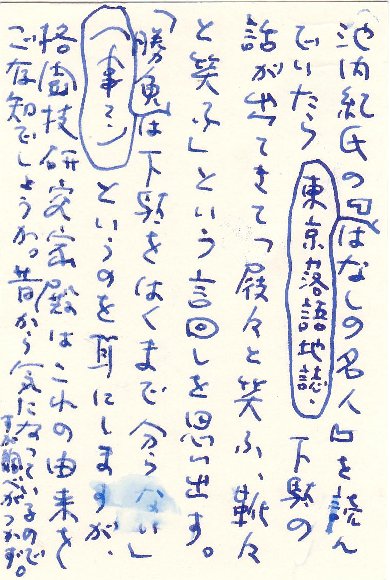 池内紀氏の『はなしの名人』を読ん
でいたら 東京落語地誌・ 下駄の
話が出てきて「屐々と笑ふ、靴々
と笑ふ」という言回しを思い出す。
「勝負は下駄をはくまで分らない」
というのを耳にしますが、
格闘技研究家殿はこれの由来を
ご存知でしょうか。昔から気になっているので
すが調べがつかず。